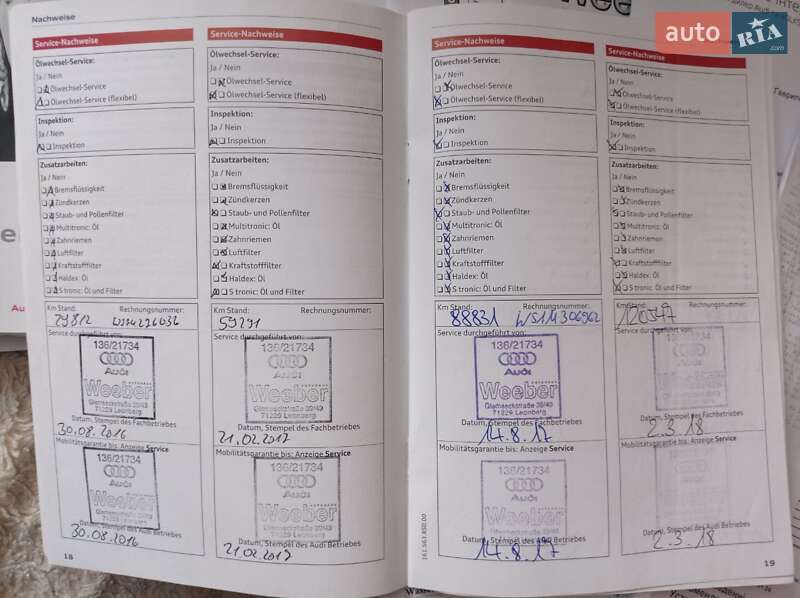 Nachweise
Service-Nachweise
Ölwechsel-Service:
Ja / Nein
Ölwechsel-Service
Ölwechsel-Service (flexibel)
Inspektion:
Ja / Nein
Inspektion
Zusatzarbeiten:
Ja / Nein
Bremsflüssigkeit
Zündkerzen
Staub- und Pollenfilter
Multitronic: Öl
Zahnriemen
Luftfilter
Kraftstofffilter
Haldex: Öl
S tronic: Öl und Filter
Km Stand: Rechnungsnummer:
29812
Service durchgeführt von:
136/21734
Audi
Weeber
Glemseckstraße 39/43
71229 Leonberg
Datum, Stempel des Fachbetriebes
30.08.2016
Mobilitätsgarantie bis: Anzeige Service
136/21734
Audi
Weeber
Glemseckstraße 39/43
71229 Leonberg
Datum, Stempel des Audi Betriebes
30.08.2016
18
Service-Nachweise
Ölwechsel-Service:
Ja / Nein
Ölwechsel-Service
Ölwechsel-Service (flexibel)
Inspektion:
Ja / Nein
Inspektion
Zusatzarbeiten:
Ja / Nein
Bremsflüssigkeit
Zündkerzen
Staub- und Pollenfilter
Multitronic: Öl
Zahnriemen
Luftfilter
Kraftstofffilter
Haldex: Öl
S tronic: Öl und Filter
Km Stand: Rechnungsnummer:
59291
Service durchgeführt von:
136/21734
Audi
Weeber
Glemseckstraße 39/43
71229 Leonberg
Datum, Stempel des Fachbetriebes
21.02.2017
Mobilitätsgarantie bis: Anzeige Service
136/21734
Audi
Weeber
Glemseckstraße 39/43
71229 Leonberg
Datum, Stempel des Audi Betriebes
21.02.2017
Service-Nachweise
Ölwechsel-Service:
Ja / Nein
Ölwechsel-Service
Ölwechsel-Service (flexibel)
Inspektion:
Ja / Nein
Inspektion
Zusatzarbeiten:
Ja / Nein
Bremsflüssigkeit
Zündkerzen
Staub- und Pollenfilter
Multitronic: Öl
Zahnriemen
Luftfilter
Kraftstofffilter
Haldex: Öl
S tronic: Öl und Filter
Km Stand: Rechnungsnummer:
88831 WS1M306962
Service durchgeführt von:
136/21734
Audi
Weeber
Glemseckstraße 39/43
71229 Leonberg
Datum, Stempel des Fachbetriebes
14.8.17
Mobilitätsgarantie bis: Anzeige Service
136/21734
Audi
Weeber
Datum, Stempel des Audi Betriebes
14.8.17
161.561.850.00
Service-Nachweise
Ölwechsel-Service:
Ja / Nein
Ölwechsel-Service
Ölwechsel-Service (flexibel)
Inspektion:
Ja / Nein
Inspektion
Zusatzarbeiten:
Ja / Nein
Bremsflüssigkeit
Zündkerzen
Staub- und Pollenfilter
Multitronic: Öl
Zahnriemen
Luftfilter
Kraftstofffilter
Haldex: Öl
S tronic: Öl und Filter
Km Stand: Rechnungsnummer:
120547
Service durchgeführt von:
136/21734
Audi
Weeber
Datum, Stempel des Fachbetriebes
2.3.18
Mobilitätsgarantie bis: Anzeige Service
Datum, Stempel des Audi Betriebes
2.3.18
19
auto RIA
.com